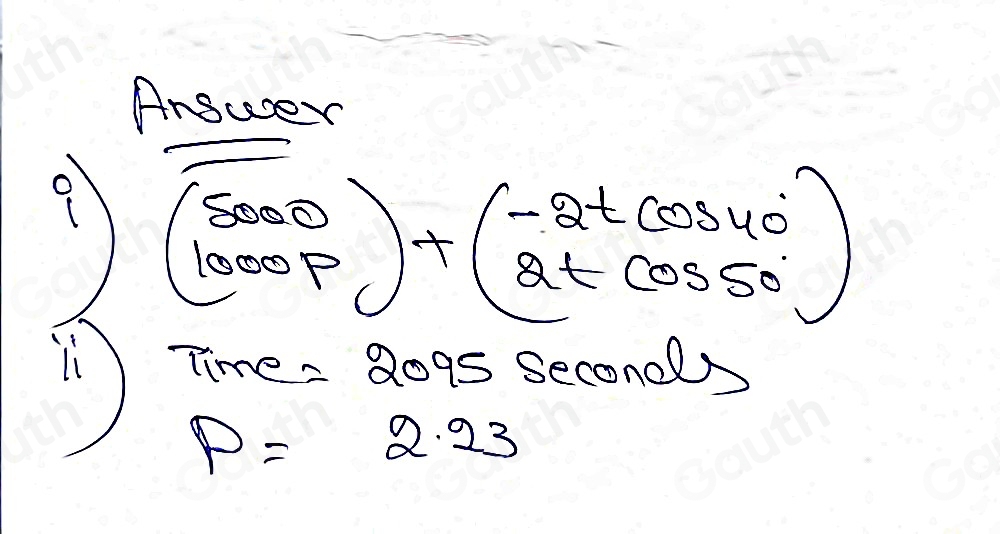 Answer
i) (5000 1000P) + (-2t cos40° 2t cos50°)
ii) Time = 2095 seconds
P = 2.23
Gauth